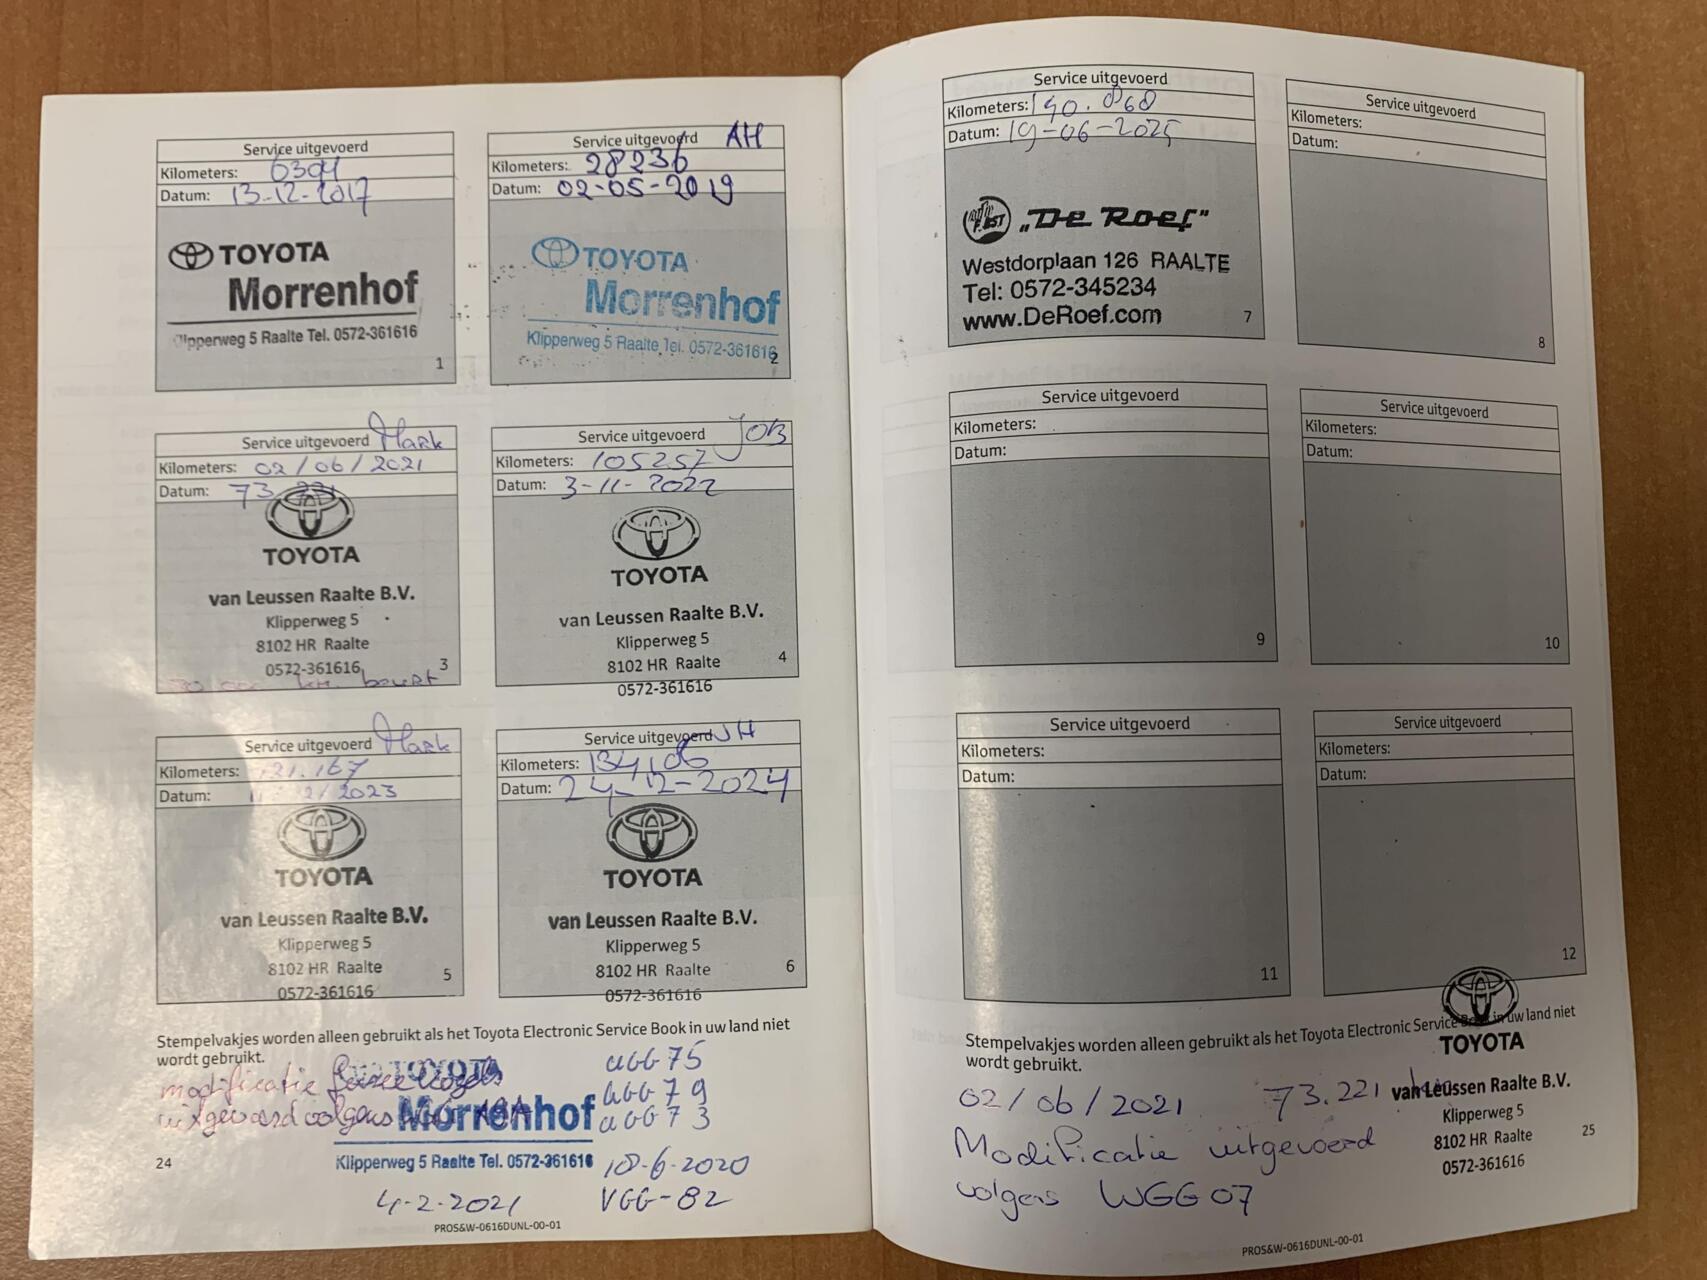 Service uitgevoerd
Kilometers: 6304
Datum: 13-12-2017
TOYOTA
Morrenhof
Klipperweg 5 Raalte Tel. 0572-361616
1
Service uitgevoerd AH
Kilometers: 28236
Datum: 02-05-2019
TOYOTA
Morrenhof
Klipperweg 5 Raalte Tel. 0572-361616
2
Service uitgevoerd Mark
Kilometers: 02/06/2021
Datum: 73.221
TOYOTA
van Leussen Raalte B.V.
Klipperweg 5
8102 HR Raalte
0572-361616
km. beurt
3
Service uitgevoerd JOB
Kilometers: 105257
Datum: 3-11-2022
TOYOTA
van Leussen Raalte B.V.
Klipperweg 5
8102 HR Raalte
0572-361616
4
Service uitgevoerd Mark
Kilometers: 121.167
Datum: /2023
TOYOTA
van Leussen Raalte B.V.
Klipperweg 5
8102 HR Raalte
0572-361616
5
Service uitgevoerd JH
Kilometers:
Datum: 24-12-2024
TOYOTA
van Leussen Raalte B.V.
Klipperweg 5
8102 HR Raalte
0572-361616
6
Stempelvakjes worden alleen gebruikt als het Toyota Electronic Service Book in uw land niet
wordt gebruikt.
modificatie
uitgevoerd volgens
TOYOTA
Morrenhof
Klipperweg 5 Raalte Tel. 0572-361616
4-2-2021
UGG 75
UGG 79
UGG 73
18-6-2020
VGG-82
24
PROS&W-0616DUNL-00-01
Service uitgevoerd
Kilometers: 140.868
Datum: 19-06-2025
"De Roef"
Westdorplaan 126 RAALTE
Tel: 0572-345234
www.DeRoef.com
7
Service uitgevoerd
Kilometers:
Datum:
8
Service uitgevoerd
Kilometers:
Datum:
9
Service uitgevoerd
Kilometers:
Datum:
10
Service uitgevoerd
Kilometers:
Datum:
11
Service uitgevoerd
Kilometers:
Datum:
12
Stempelvakjes worden alleen gebruikt als het Toyota Electronic Service Book in uw land niet
wordt gebruikt.
02/06/2021 73.221 km
Modificatie uitgevoerd
volgens WGG07
TOYOTA
van Leussen Raalte B.V.
Klipperweg 5
8102 HR Raalte
0572-361616
25
PROS&W-0616DUNL-00-01